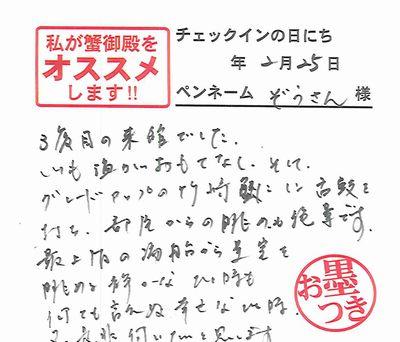 私が蟹御殿を
オススメ
します!!
チェックインの日にち
年 2月25日
ペンネーム ぞうさん 様
3度目の来館でした。
いつも温かいおもてなし、そして
グレードアップの竹崎蟹には舌鼓を
打ち、部屋からの眺めも絶景です。
最上階の湯船から星空を
眺める静かなひと時も
何とも言えぬ幸せなひと時。
又、是非伺いたいと思います
お墨つき